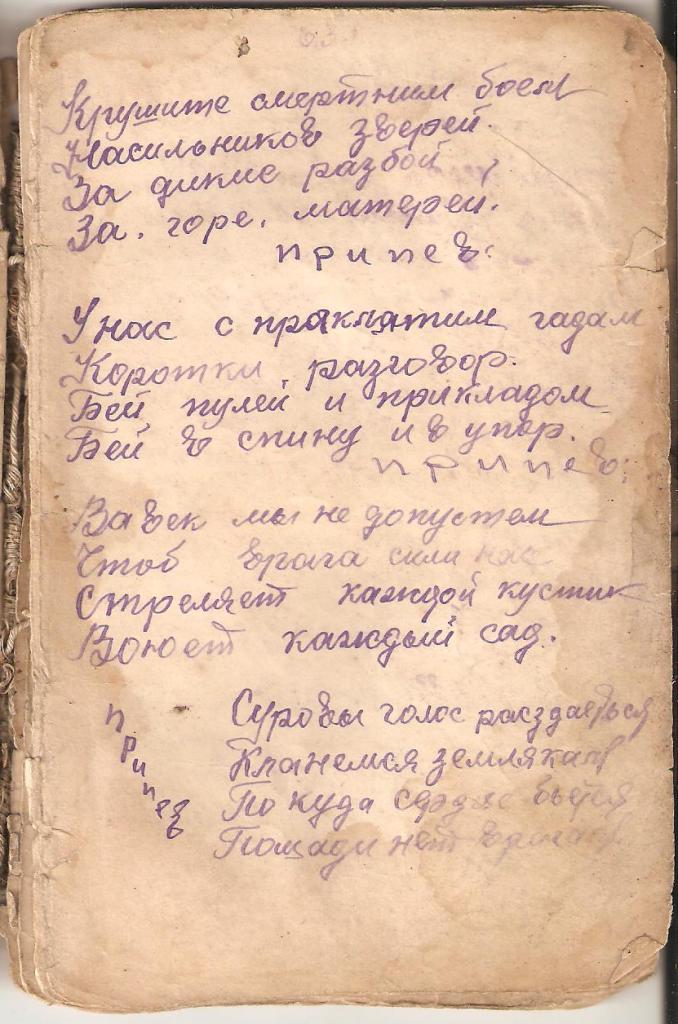 Крушите смертним боем
Насильников зверей.
За дикие разбой,
За. горе. матерей.
припев:
У нас с праклятим гадам
Коротки, разговор.
Бей пулей и прикладом
Бей в спину и в упор.
припев:
Вавек мы не допустем
Чтоб врага сили нас
Стреляет каждой кустик
Воюет каждый сад.
припев
Суровы голос расздаеться
Клянемся землякам
По куда сердце бьется
Пощади нет врагам